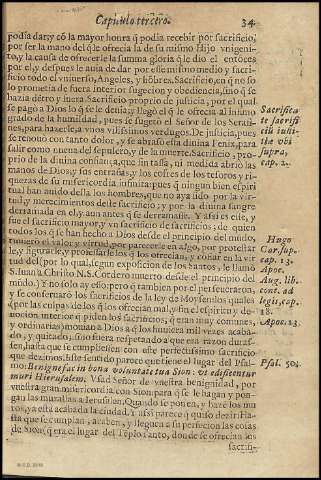 Capitulo tercero. 34
podia dar, y cõ la mayor honra q̃ podia recebir por sacrificio,
por ser la mano del q̃ le ofrecia la de su mismo Hijo vnigeni-
to, y la causa de ofrecerle la summa gloria q̃ le dio el entõces
por el, y despues le auia de dar por esse mismo medio y sacri-
ficio todo el vniuerso, Angeles, y hõbres. Sacrificio, en q̃ no so
lo prometia de fuera interior sugecion y obediencia, sino q̃ se
hazia dẽtro y fuera. Sacrificio proprio de justicia, por el qual
se pagò a Dios lo q̃ se le deuia; y llegò el q̃ le ofrecia al summo
grado de la humildad, pues se sugetò el Señor de los Serafi-
nes, para hazerle, a vnos vilissimos verdugos. De justicia, pues
se renouò con tanto dolor, y se abrasò esta diuina Fenix, para
salir como enemiga del sepulcro, y de la muerte. Sacrificio, pro-
prio de la diuina confiança, que sin tassa, ni medida abrio las
manos de Dios, y sus entrañas, y los cofres de los tesoros y ri-
quezas de su misericordia infinita: pues q̃ ningun bien espiri
tual han auido de los hombres, que no aya sido por la vir-
tud, y merecimientos deste sacrificio, y por la diuina sangre
derramada en el, y aun antes q̃ se derramasse. Y assi es este, y
fue el sacrificio mayor, y vn sacrificio de sacrificios; de quien
todos los q̃ se han hecho a Dios desde el principio del mũdo,
tuuierõ el valor y virtud, por parecerle en algo, por protestar
le, y figurarle, y professarle los q̃ los ofrecian, y confiar en la vir
tud del (por lo qual, segun exposicion de los Santos, le llamò
S. Iuan a Christo N. S. Cordero muerto desde el principio del
mũdo.) Y no solo ay esso: porq̃ tambien por el perseueraron,
y se conseruarõ los sacrificios de la ley de Moysen, los quales
(por las culpas de los q̃ los ofrecian mal, y sin el espiritu y de-
uocion interior q̃ piden los sacrificios, q̃ eran muy comunes,
y ordinarias) mouian a Dios a q̃ los huuiera mil vezes acaba-
do, y quitado, sino fuera respetando a que essa razon duras-
sen, hasta que se cumpliessen con este perfectissimo sacrificio
que dezimos. Este sentido parece que tiene el lugar del Psal-
mo: Benignefac in bona voluntate tua Sion: vt ædificentur
muri Hierusalem. Vsad Señor de vuestra benignidad, por
vuestra gran misericordia con Sion: para q̃ se le hagan y pon-
gan las murallas a Ierusalem. Quando se ponen, y hazē los mu
ros, ya està acabada la ciudad. Y assi parece q̃ quiso dezir: Ha-
sta que se cumplan, acaben, y lleguen a su perfeccion las cosas
de Sion, q̃ era el lugar del Tēplo santo, donde se ofrecian los
sacrifi-
Sacrifica
te sacrifi
ciũ iusti-
tiæ vbi
supra,
cap. 2.
Hugo
Car. sup.
cap. 13.
Apoc.
Aug. lib.
cont. ad
legis, cap.
18.
Apoc. 13.
Psal. 50.